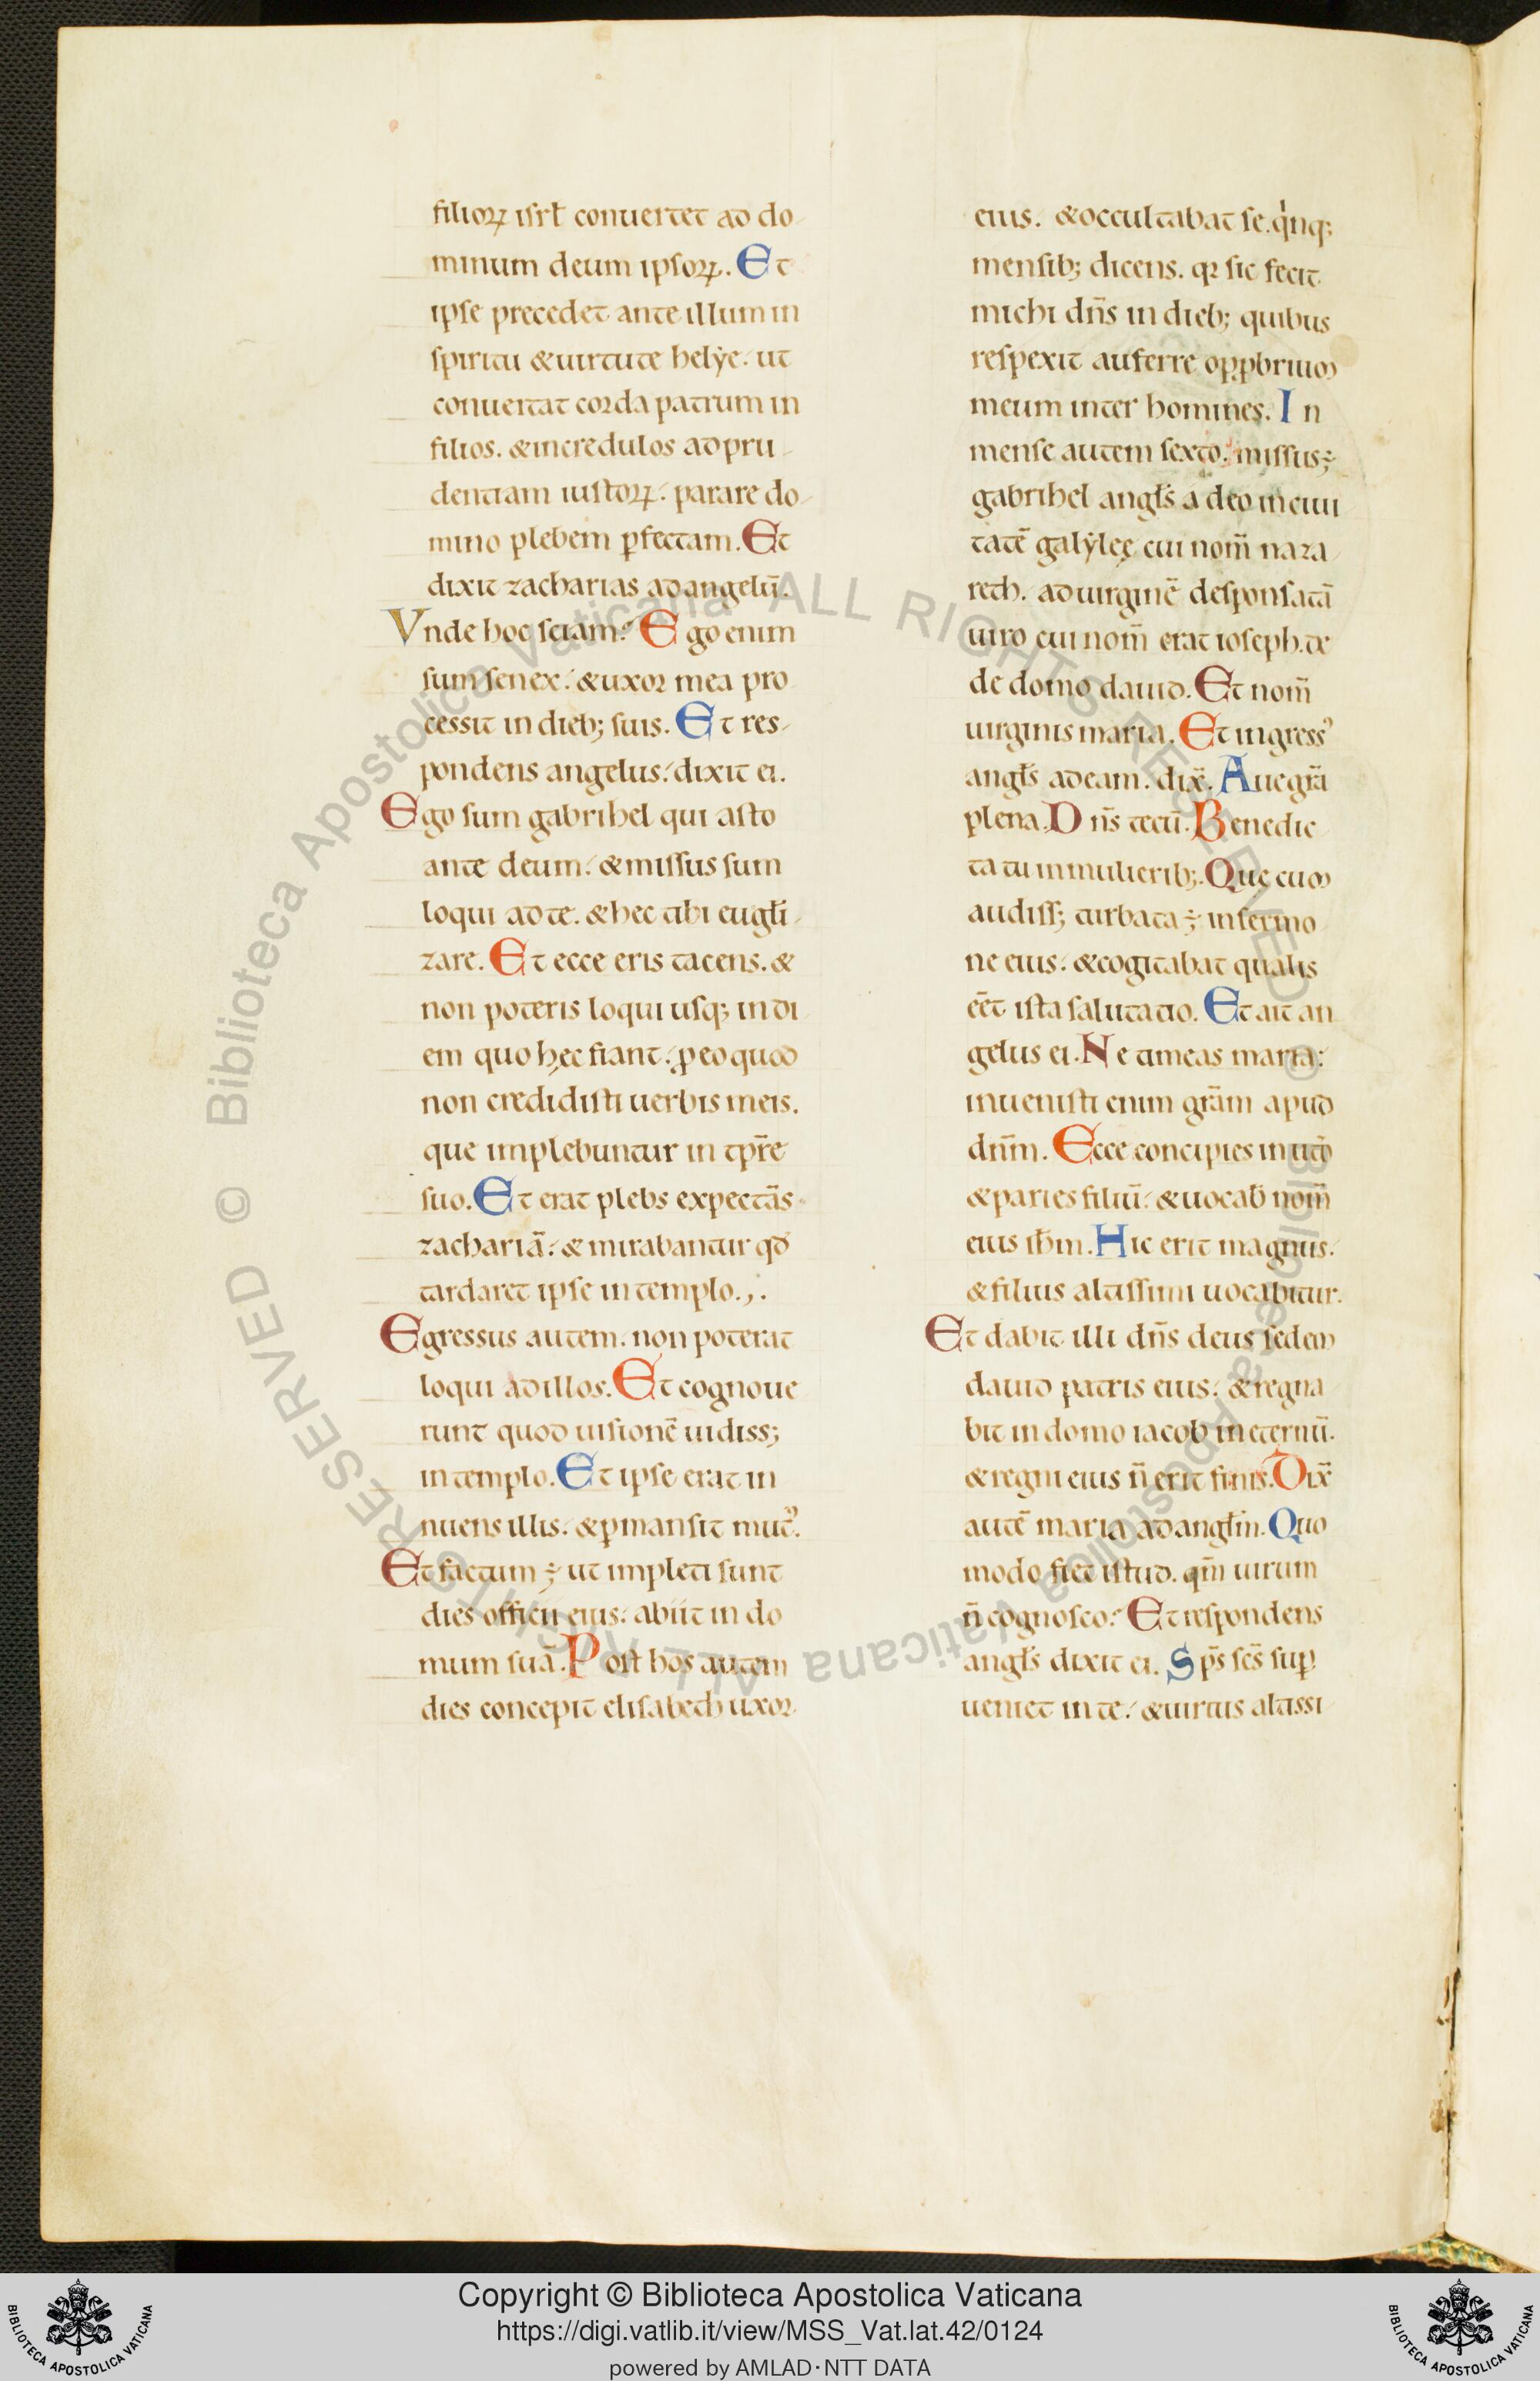 filioꝝ isrƚ conuertet ad do
minum deum ipsoꝝ. Et
ipse precedet ante illum in
spiritu & uirtute helẏe. ut
conuertat corda patrum in
filios. & incredulos ad pru
dentiam iustoꝝ. parare do
mino plebem ꝑfectam. Et
dixit zacharias ad angelū.
Vnde hoc sciam? Ego enim
sum senex. & uxor mea pro
cessit in dieb; suis. Et res
pondens angelus. dixit ei.
Ego sum gabrihel qui asto
ante deum. & missus sum
loqui ad te. & hec tibi eugƚi
zare. Et ecce eris tacens. &
non poteris loqui usq; in di
em quo hęc fiant. ꝓ eo quod
non credidisti uerbis meis.
que implebuntur in tp̄re
suo. Et erat plebs expectās
zachariā. & mirabantur qđ
tardaret ipse in templo.,.
Egressus autem. non poterat
loqui ad illos. Et cognoue
runt quod uisionē uidiss;
in templo. Et ipse erat in
nuens illis. & ꝑmansit mutꝰ.
Et factum ÷ ut impleti sunt
dies officii eius. abiit in do
mum suā. Post hos autem
dies concepit elisabeth uxor
eius. & occultabat se. qͥnq;
mensib; dicens. qꝛ sic fecit
michi dn̄s in dieb; quibus
respexit auferre opꝓbrium
meum inter homines. In
mense autem sexto. missus ÷
gabrihel angƚs a deo in ciui
tatē galẏlęę cui nom̄ naza
reth. ad uirginē desponsatā
uiro cui nom̄ erat ioseph. de
de domo dauid. Et nom̄
uirginis maria. Et ingressꝰ
angƚs ad eam. dix̄. Aue gr̄a
plena. Dn̄s tecū. Benedic
ta tu in mulierib;. Quę cum
audiss; turbata ÷ in sermo
ne eius. & cogitabat qualis
eēt ista salutatio. Et ait an
gelus ei. Ne timeas maria.
inuenisti enim gr̄am apud
dn̄m. Ecce concipies in utͦ
& paries filiū. & uocab̄ nom̄
eius ih̄m. Hic erit magnus.
& filius altissimi uocabitur.
Et dabit illi dn̄s deus sedem
dauid patris eius. & regna
bit in domo iacob in eternū.
& regni eius n̄ erit finis. Dix̄
autē maria ad angƚm. Quo
modo fiet istud. qm̄ uirum
n̄ cognosco? Et respondens
angƚs dixit ei. Sp̄s sc̄s suꝑ
ueniet in te. & uirtus altissi
Copyright © Biblioteca Apostolica Vaticana
https://digi.vatlib.it/view/MSS_Vat.lat.42/0124
powered by AMLAD·NTT DATA
BIBLIOTECA APOSTOLICA VATICANA
BIBLIOTECA APOSTOLICA VATICANA
© Biblioteca Apostolica Vaticana ALL RIGHTS RESERVED
© Biblioteca Apostolica Vaticana ALL RIGHTS RESERVED